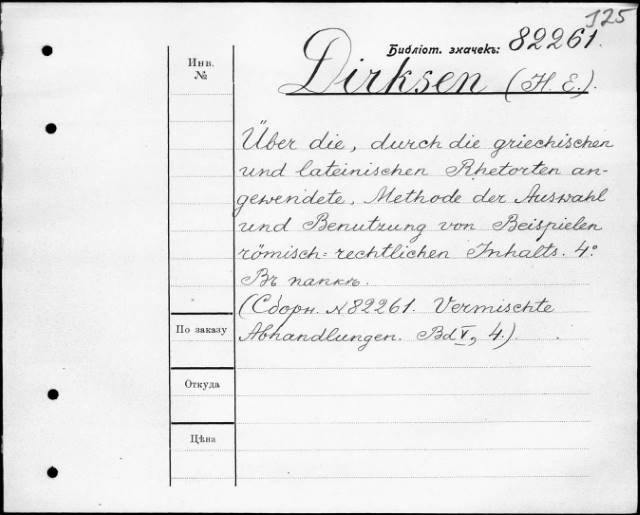 125
Библіот. значекъ: 82261.
Инв. №
Dirksen (H. E.).
Über die, durch die griechischen
und lateinischen Rhetorten an-
gewendete, Methode der Auswahl
und Benutzung von Beispielen
römisch=rechtlichen Inhalts. 4º
Въ папкѣ.
(Сборн. №82261. Vermischte
Abhandlungen. Bd V, 4.)
По заказу
Откуда
Цѣна